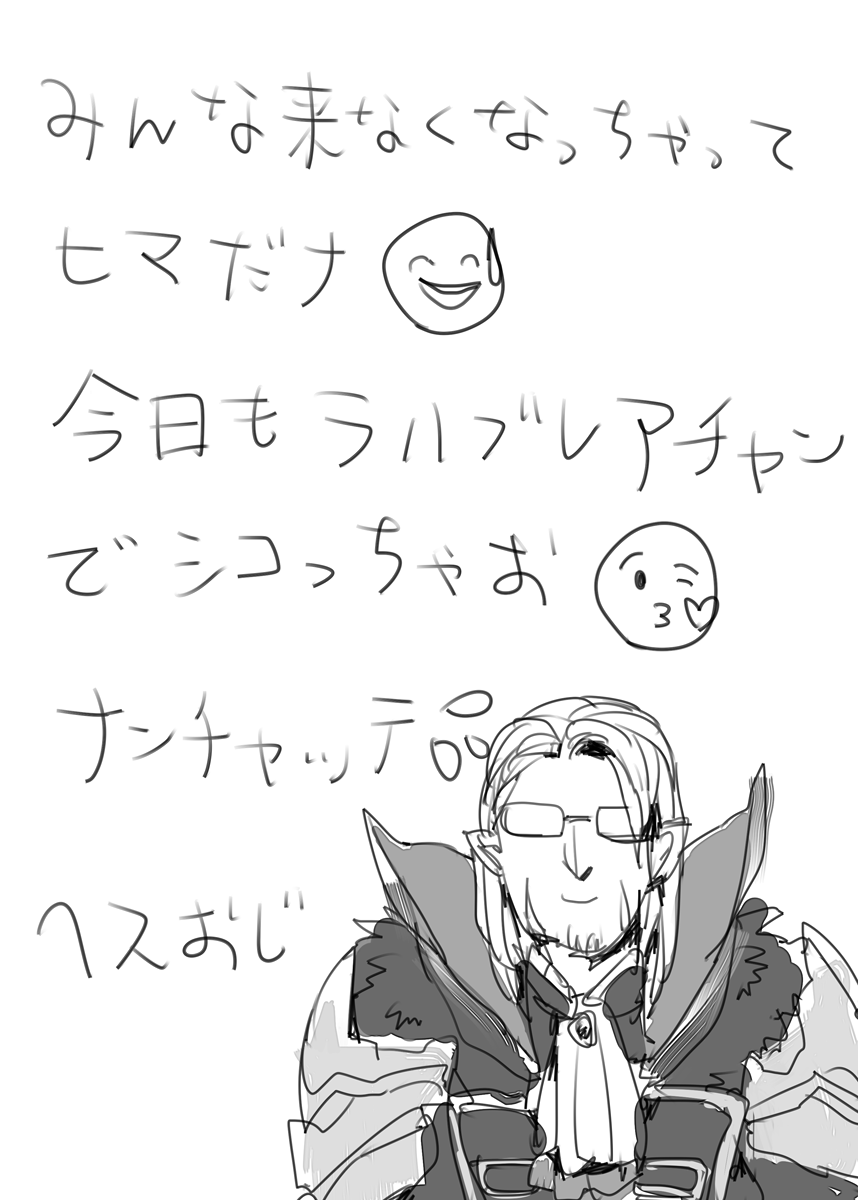 みんな来なくなっちゃって
ヒマだナ
今日もラハブレアチャン
でシコっちゃお
ナンチャッテ
ヘスおじ